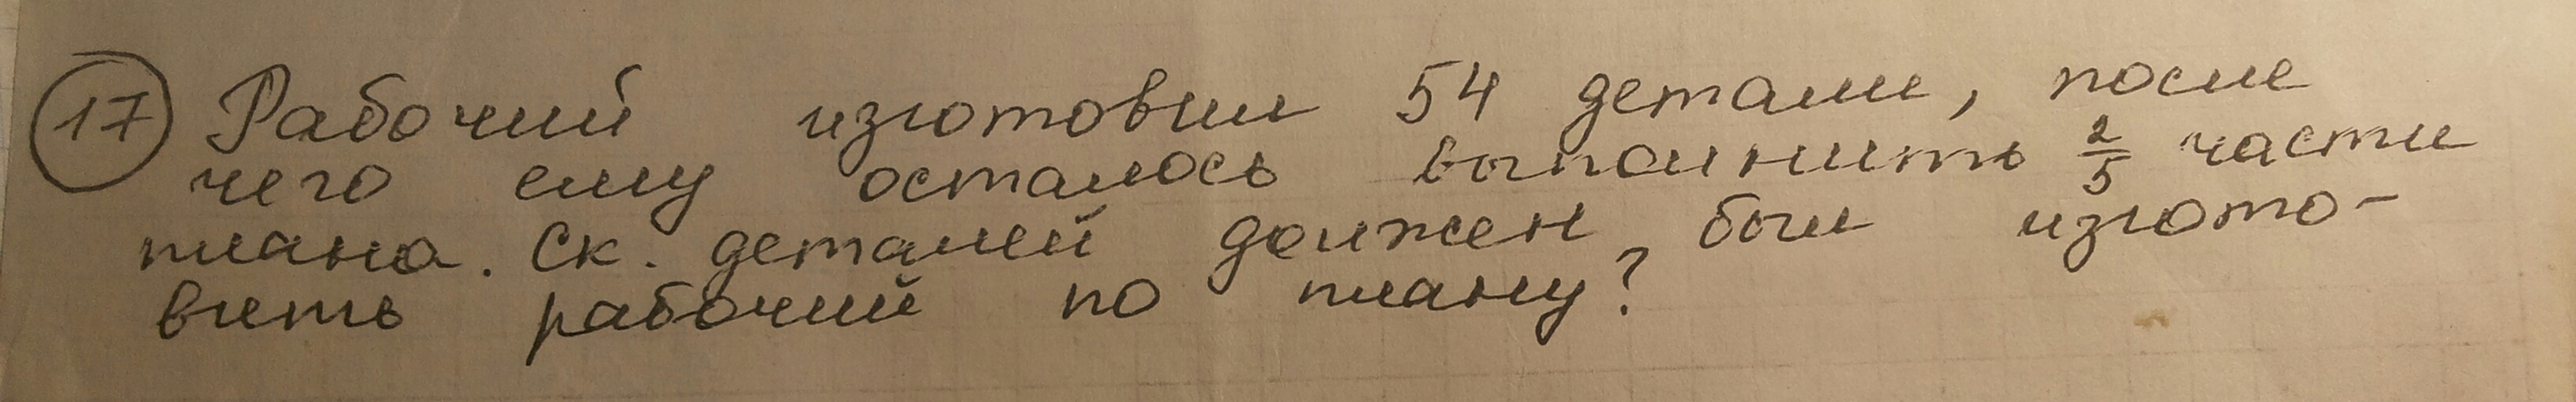 17 Рабочий изготовил 54 детали, после
чего ему осталось выполнить 2/5 части
плана. Ск. деталей должен был изгото-
вить рабочий по плану?